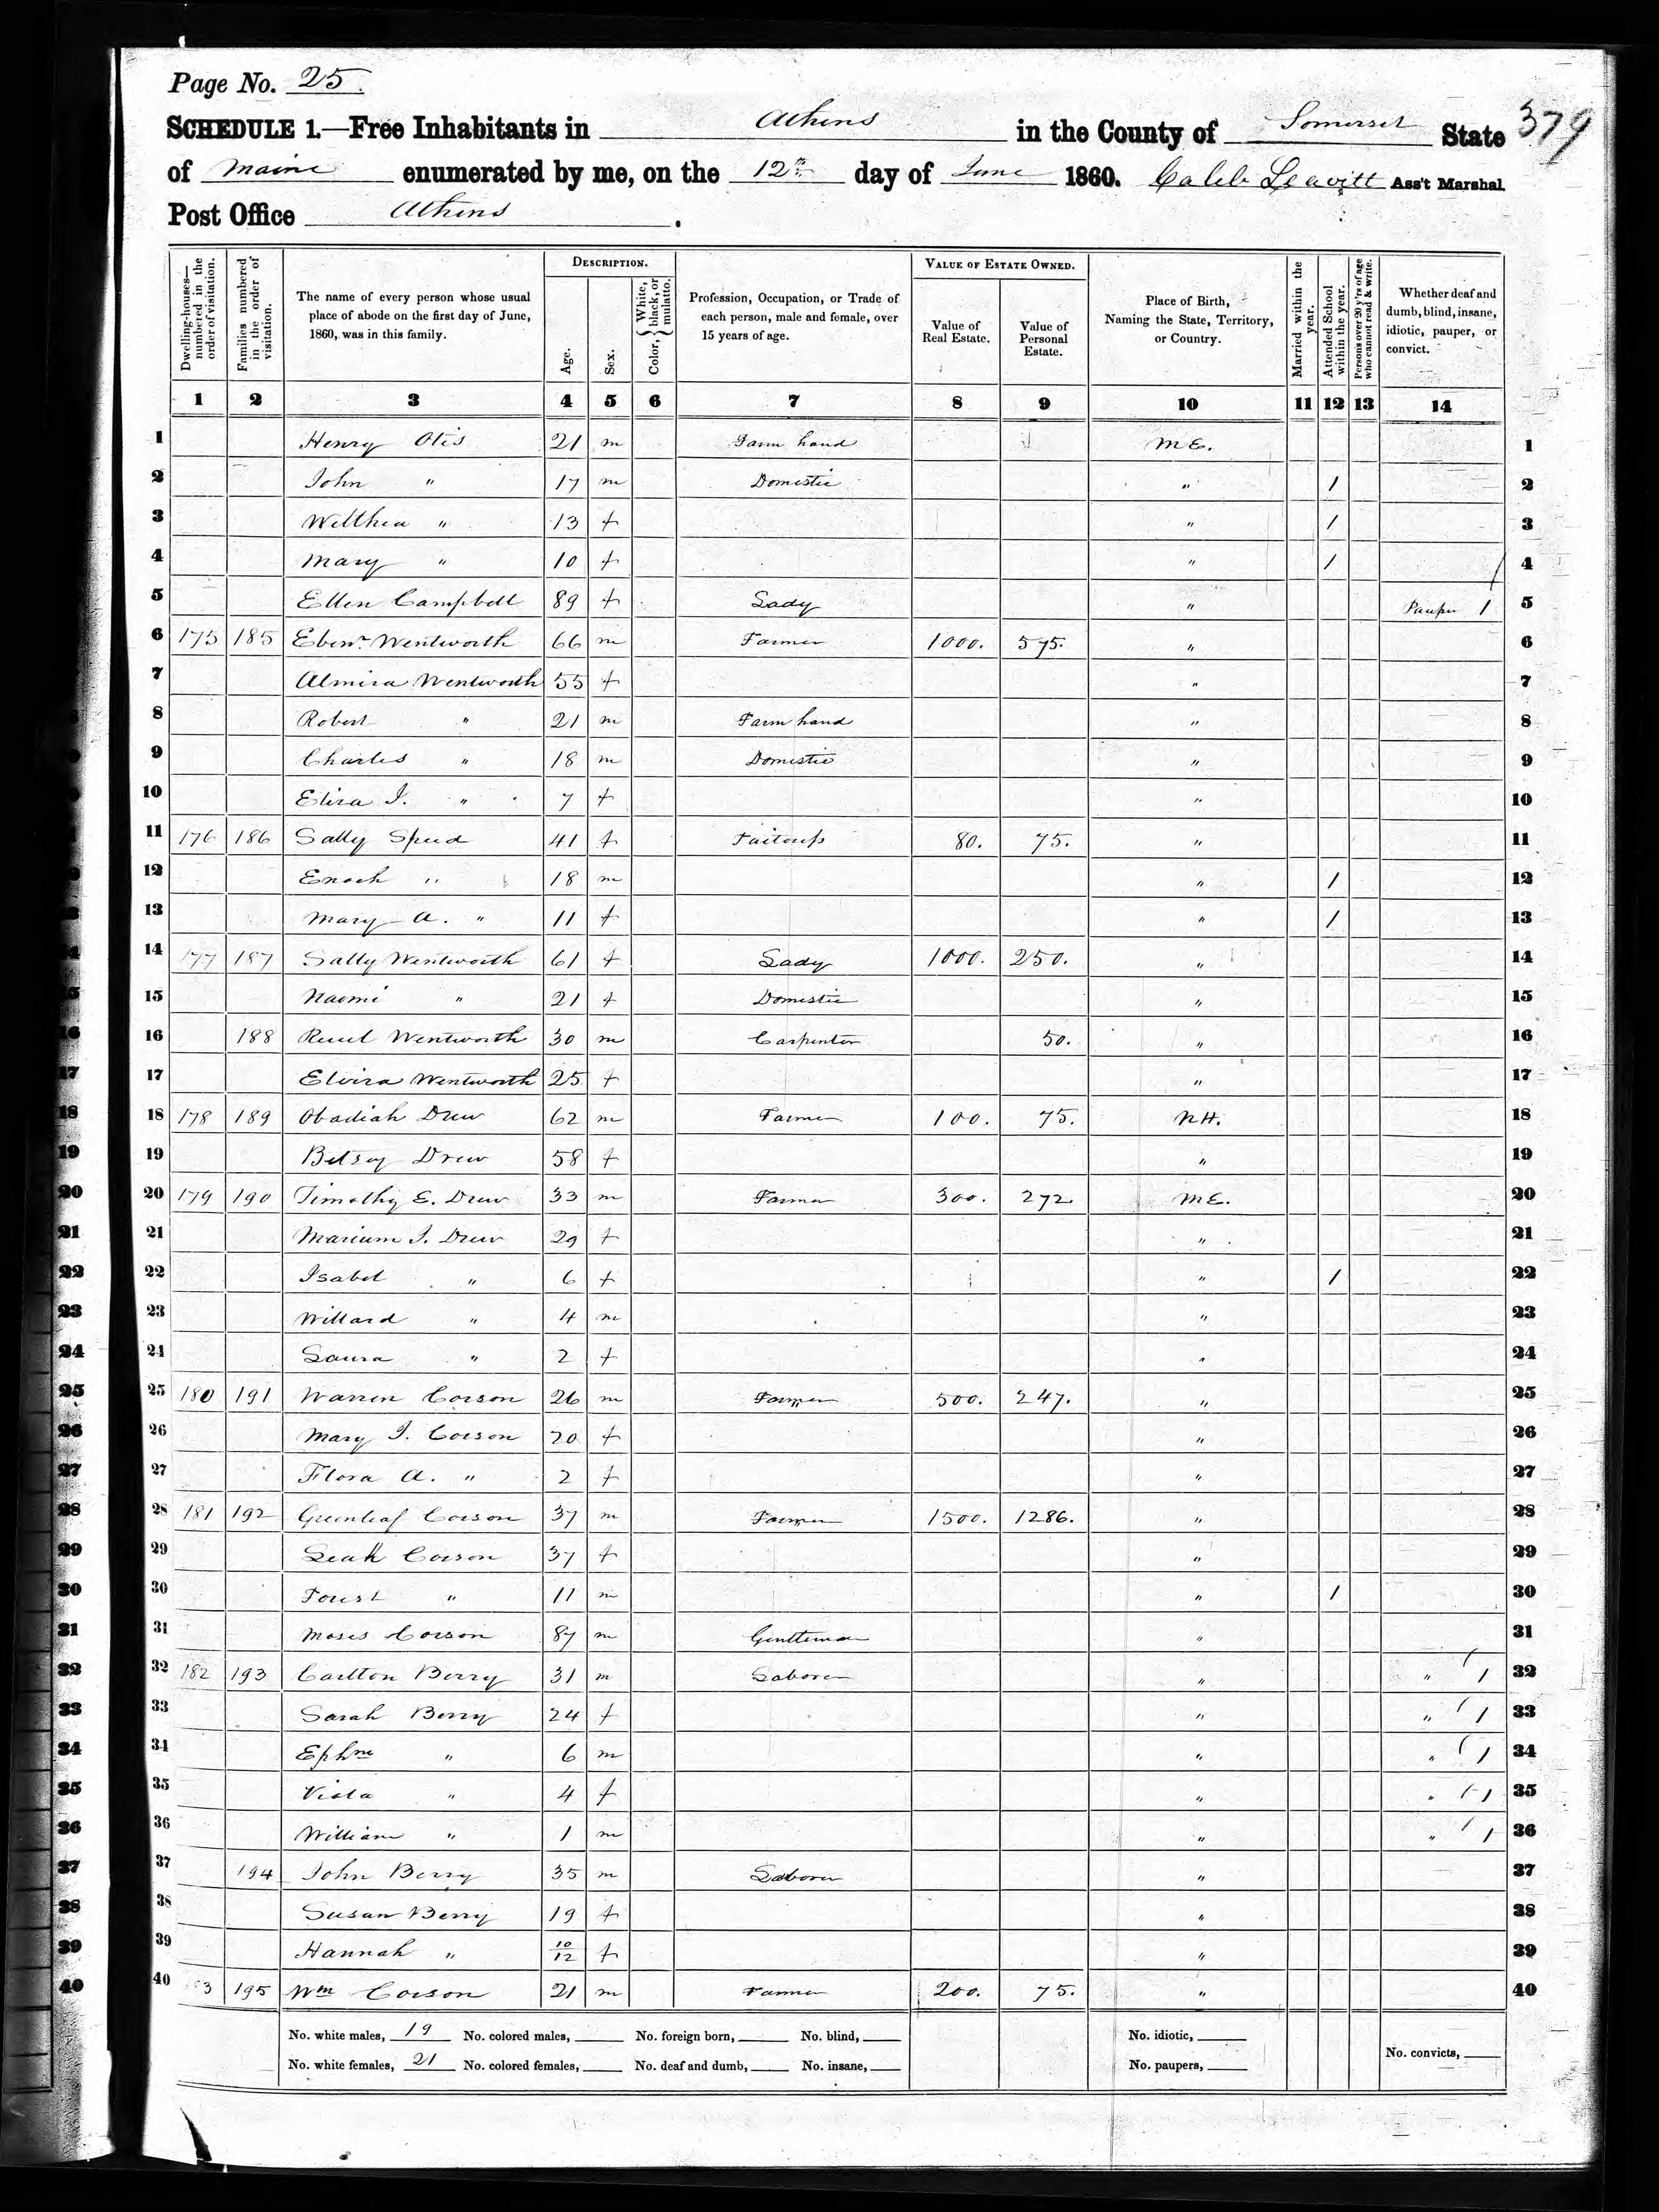 Page No. 25.
SCHEDULE 1.—Free Inhabitants in Athens in the County of Somerset State 379
of Maine enumerated by me, on the 12th day of June 1860. Caleb Leavitt Ass't Marshal.
Post Office Athens.
Dwelling-houses—numbered in the order of visitation. Families numbered in the order of visitation. The name of every person whose usual place of abode on the first day of June, 1860, was in this family. DESCRIPTION. Age. Sex. Color, { White, black, or mulatto. Profession, Occupation, or Trade of each person, male and female, over 15 years of age. VALUE OF ESTATE OWNED. Value of Real Estate. Value of Personal Estate. Place of Birth, Naming the State, Territory, or Country. Married within the year. Attended School within the year. Persons over 20 y'rs of age who cannot read & write. Whether deaf and dumb, blind, insane, idiotic, pauper, or convict.
1 2 3 4 5 6 7 8 9 10 11 12 13 14
1 Henry Otis 21 m Farm hand ME. 1
2 John " 17 m Domestic " / 2
3 Welthea " 13 f " / 3
4 Mary " 10 f " / 4
5 Ellen Campbell 89 f Lady " Pauper 1 5
6 175 185 Ebenr. Wentworth 66 m Farmer 1000. 575. " 6
7 Almira Wentworth 55 f " 7
8 Robert " 21 m Farm hand " 8
9 Charles " 18 m Domestic " 9
10 Eliza J. " 7 f " 10
11 176 186 Sally Speed 41 f 80. 75. " 11
12 Enoch " 18 m " / 12
13 Mary A. " 11 f " / 13
14 177 187 Sally Wentworth 61 f Lady 1000. 250. " 14
15 Naomi " 21 f Domestic " 15
16 188 Ruel Wentworth 30 m Carpenter 50. " 16
17 Elvira Wentworth 25 f " 17
18 178 189 Obadiah Drew 62 m Farmer 100. 75. NH. 18
19 Betsey Drew 58 f " 19
20 179 190 Timothy E. Drew 33 m Farmer 300. 272. ME. 20
21 Marium J. Drew 29 f " 21
22 Isabel " 6 f " / 22
23 Willard " 4 m " 23
24 Laura " 2 f " 24
25 180 191 Warren Corson 26 m Farmer 500. 247. " 25
26 Mary J. Corson 20 f " 26
27 Flora A. " 2 f " 27
28 181 192 Greenleaf Corson 37 m Farmer 1500. 1286. " 28
29 Leah Corson 37 f " 29
30 Forest " 11 m " / 30
31 Moses Corson 87 m Gentleman " 31
32 182 193 Carlton Berry 31 m Laborer " " 1 32
33 Sarah Berry 24 f " " 1 33
34 Ephm " 6 m " " 1 34
35 Viola " 4 f " " 1 35
36 William " 1 m " " 1 36
37 194 John Berry 35 m Laborer " 37
38 Susan Berry 19 f " 38
39 Hannah " 10/12 f " 39
40 3 195 Wm Corson 21 m Farmer 200. 75. " 40
No. white males, 19 No. colored males, No. foreign born, No. blind, No. idiotic,
No. white females, 21 No. colored females, No. deaf and dumb, No. insane, No. paupers, No. convicts,